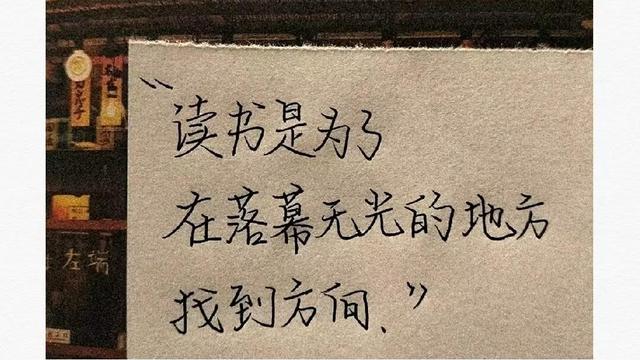 “读书是为了
在落幕无光的地方
找到方向、”
左端